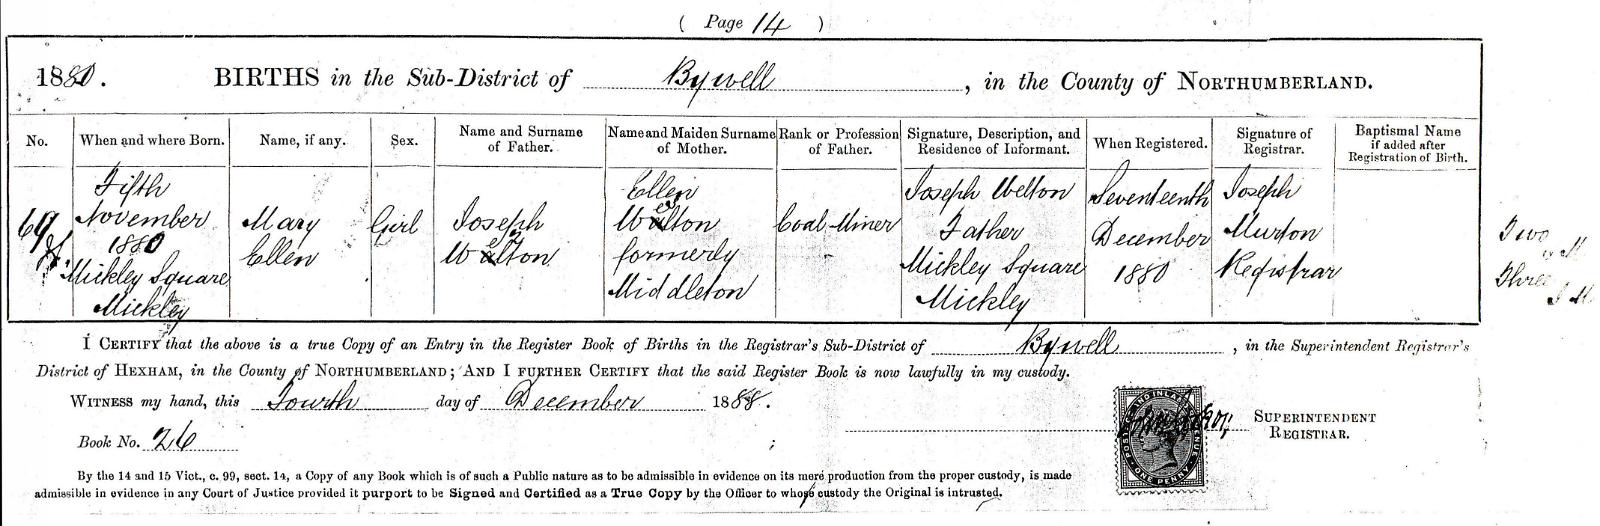 ( Page 14 )
1880. BIRTHS in the Sub-District of Bywell, in the County of NORTHUMBERLAND.
No. When and where Born. Name, if any. Sex. Name and Surname of Father. Name and Maiden Surname of Mother. Rank or Profession of Father. Signature, Description, and Residence of Informant. When Registered. Signature of Registrar. Baptismal Name if added after Registration of Birth.
69
Fifth
November
1880
Mickley Square
Mickley
Mary
Ellen
Girl
Joseph
Walton
Ellen
Walton
formerly
Middleton
Coal Miner
Joseph Welton
Father
Mickley Square
Mickley
Seventeenth
December
1880
Joseph
Murton
Registrar
Two
Three
J M
I CERTIFY that the above is a true Copy of an Entry in the Register Book of Births in the Registrar's Sub-District of Bywell, in the Superintendent Registrar's
District of HEXHAM, in the County of NORTHUMBERLAND; AND I FURTHER CERTIFY that the said Register Book is now lawfully in my custody.
WITNESS my hand, this Fourth day of December 1888.
SUPERINTENDENT
REGISTRAR.
Book No. 26
By the 14 and 15 Vict., c. 99, sect. 14, a Copy of any Book which is of such a Public nature as to be admissible in evidence on its mere production from the proper custody, is made
admissible in evidence in any Court of Justice provided it purport to be Signed and Certified as a True Copy by the Officer to whose custody the Original is intrusted.
POSTAGE AND INLAND REVENUE
ONE PENNY